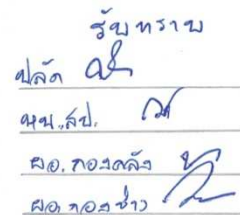 รับทราบ
ปลัด
หน.สป.
ผอ.กองคลัง
ผอ.กองช่าง